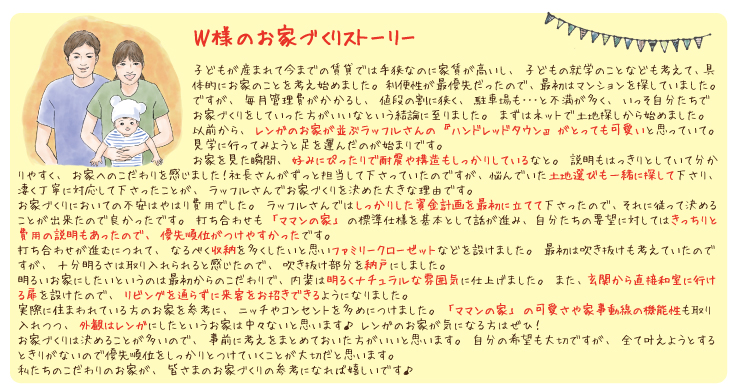 W様のお家づくりストーリー
子どもが産まれて今までの賃貸では手狭なのに家賃が高いし、子どもの就学のことなども考えて、具
体的にお家のことを考え始めました。利便性が最優先だったので、最初はマンションを探していました。
ですが、毎月管理費がかかるし、値段の割に狭く、駐車場も・・・と不満が多く、いっそ自分たちで
お家づくりをしていった方がいいなという結論に至りました。まずはネットで土地探しから始めました。
以前から、レンガのお家が並ぶラッフルさんの『ハンドレッドタウン』がとっても可愛いと思っていて。
見学に行ってみようと足を運んだのが始まりです。
お家を見た瞬間、好みにぴったりで耐震や構造もしっかりしているなと。説明もはっきりとしていて分か
りやすく、お家へのこだわりを感じました！社長さんがずっと担当して下さっていたのですが、悩んでいた土地選びも一緒に探して下さり、
凄く丁寧に対応して下さったことが、ラッフルさんでお家づくりを決めた大きな理由です。
お家づくりにおいての不安はやはり費用でした。ラッフルさんではしっかりした資金計画を最初に立てて下さったので、それに従って決める
ことが出来たので良かったです。打ち合わせも「ママンの家」の標準仕様を基本として話が進み、自分たちの要望に対してはきっちりと
費用の説明もあったので、優先順位がつけやすかったです。
打ち合わせが進むにつれて、なるべく収納を多くしたいと思いファミリークローゼットなどを設けました。最初は吹き抜けも考えていたので
すが、十分明るさは取り入れられると感じたので、吹き抜け部分を納戸にしました。
明るいお家にしたいというのは最初からのこだわりで、内装は明るくナチュラルな雰囲気に仕上げました。また、玄関から直接和室に行け
る扉を設けたので、リビングを通らずに来客をお招きできるようになりました。
実際に住まわれている方のお家を参考に、ニッチやコンセントを多めにつけました。「ママンの家」の可愛さや家事動線の機能性も取り
入れつつ、外観はレンガにしたというお家は中々ないと思います♪レンガのお家が気になる方はぜひ！
お家づくりは決めることが多いので、事前に考えをまとめておいた方がいいと思います。自分の希望も大切ですが、全て叶えようとする
ときりがないので優先順位をしっかりとつけていくことが大切だと思います。
私たちのこだわりのお家が、皆さまのお家づくりの参考になれば嬉しいです♪